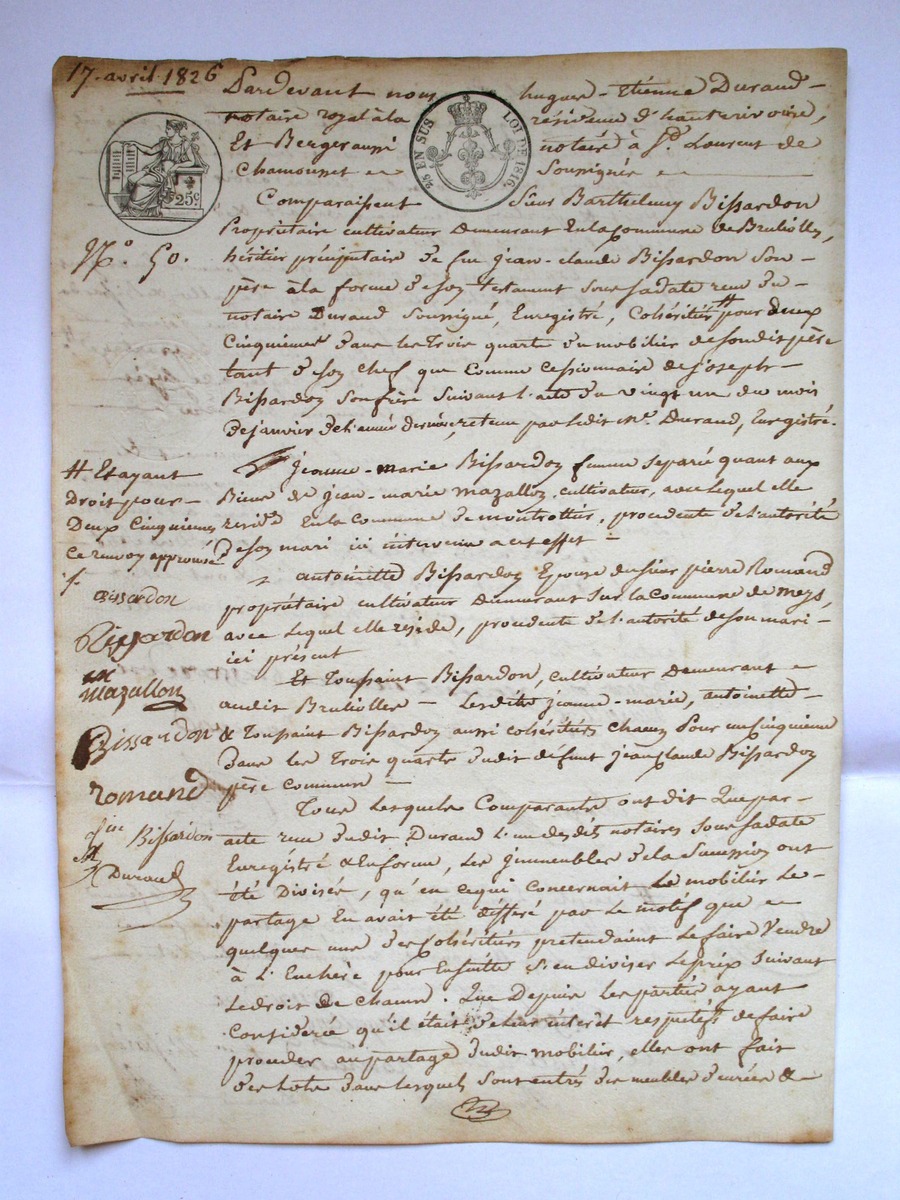 17. avril 1826
Pardevant nous hugues-Etienne Durand
notaire royal à la résidence d'hauterivoire,
Et Berger aussi notaire à St. Laurent de
Chamousset Soussignés
25c
25 EN SUS
LOI DE 1816.
N.o 50.
Comparaissent Sieur Barthelemy Bissardon
Propriétaire cultivateur Demeurant En la Commune de Brulioles,
héritier préciputaire de feu jean-claude Bissardon Son
père à la forme de son testament sous sa date reçu du
notaire Durand Soussigné, Enregistré, Cohéritier # pour deux
Cinquiemes dans les Trois quarts du mobilier de son dit père
tant de son chef que comme Cessionnaire de joseph
Bissardon Son frère Suivant l'acte du vingt un du mois
de janvier de l'année dernière, retenu par ledit Me. Durand, Enregistré.
jeanne-marie Bissardon femme separée quant aux
Biens de jean-marie mazallon, cultivateur, avec lequel elle
reside En la Commune de montrottier, procedente de l'autorité
de son mari ici intervenu a cet effet
antoinette Bissardon Epouse du sieur pierre Romand
propriétaire cultivateur Demeurant sur la Commune de meys,
avec lequel elle reside, procedente de l'autorité de son mari
ici présent
Et Toussaint Bissardon, cultivateur Demeurant
audit Brulioles Lesdits jeanne-marie, antoinette
& Toussaint Bissardon aussi cohéritiers chacun Pour un Cinquieme
dans les Trois quarts dudit défunt jean Claude Bissardon
père commun
Tous Lesquels Comparants ont dit Que par
acte reçu dudit Durand l'un desdits notaires sous sa date
Enregistré & En forme, Les jmmeubles de la Succession ont
été Divisés, qu'en ce qui Concernait Le mobilier Le
partage En avait été différé par Le motif que
quelques uns des Cohéritiers pretendaient Le faire Vendre
à L'Enchère pour Ensuitte S'en diviser Le prix Suivant
Le droit de Chacun. Que Depuis Les parties ayant
Considéré qu'il était de leur intérêt respectif de faire
proceder au partage dudit mobilier, elles ont fait
des Lots dans lesquels Sont entrés des meubles denrées &
# Et ayant
Droit pour
Deux Cinquiemes
Ce renvoy approuvé
Bissardon
Bissardon
mazallon
Bissardon
romand
Bissardon
Durand